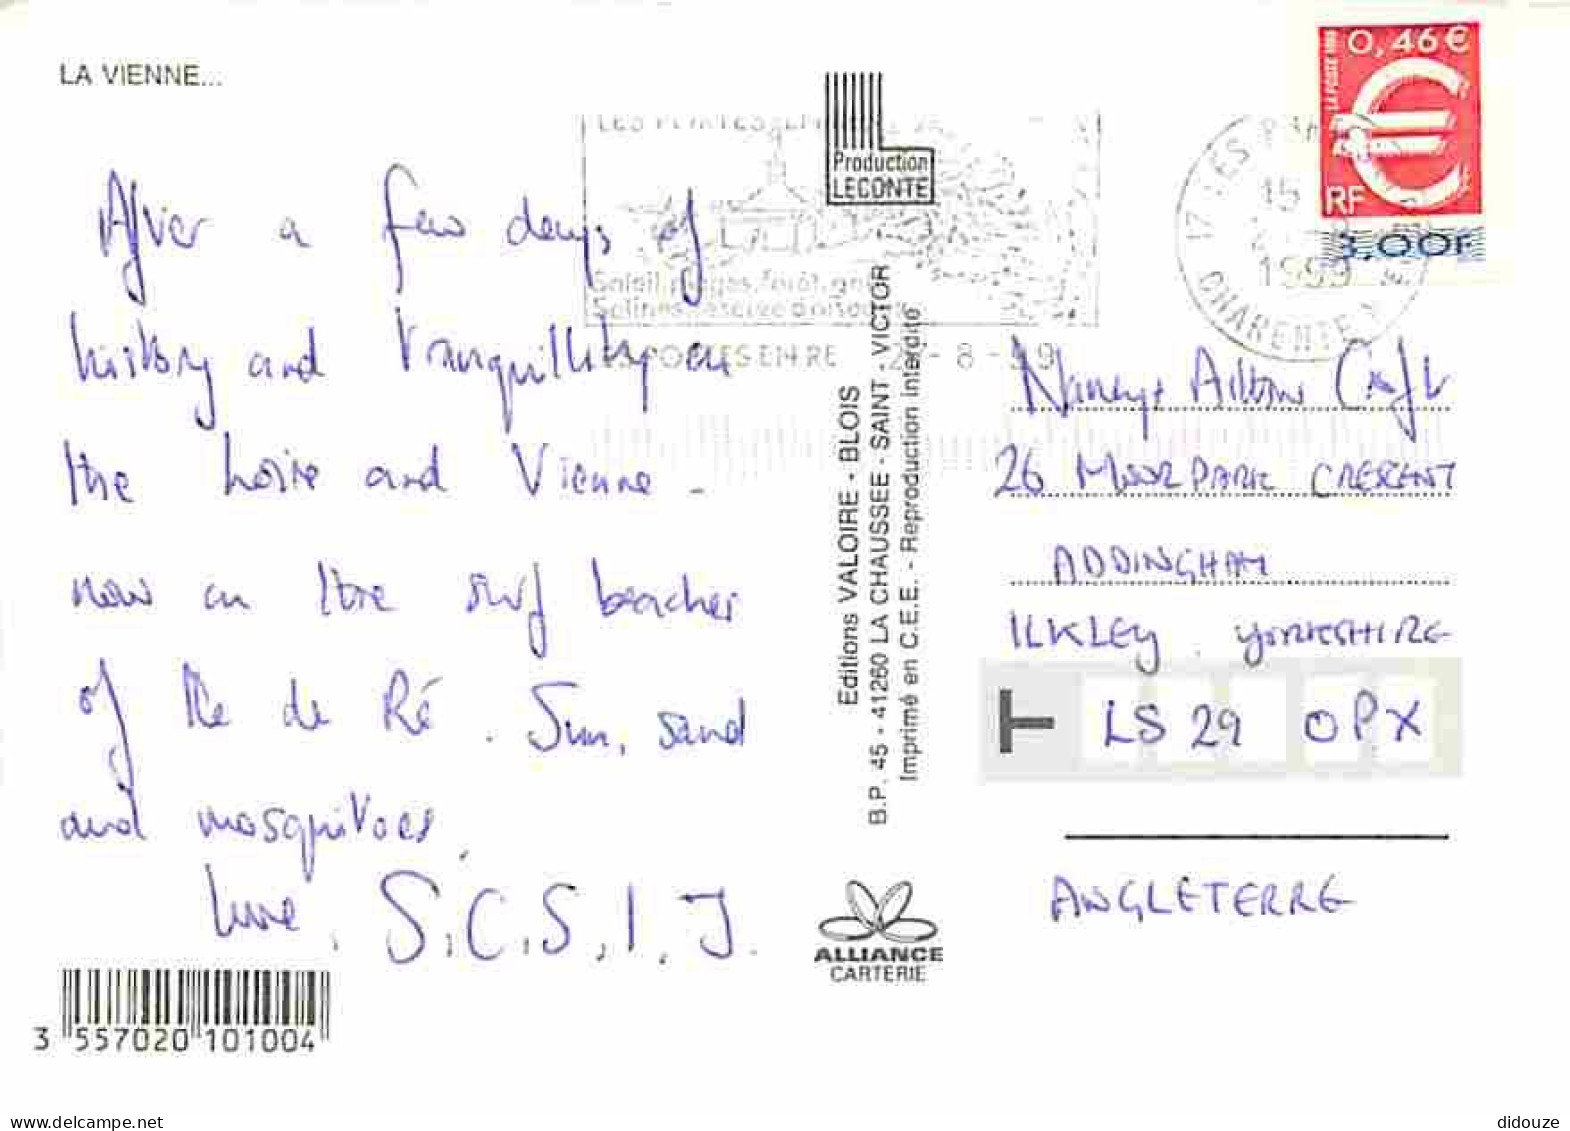 LA VIENNE...
After a few days of
history and tranquillity on
the Loire and Vienne -
now on the surf beaches
of Ile de Ré. Sun, sand
and mosquitoes.
Love, S.C.S, I, J.
3 557020 101004
Production
LECONTE
Soleil, plages, forêt,
Salines, réserve d'oiseaux
LES PORTES EN RE - 8 -
Editions VALOIRE - BLOIS
B.P. 45 - 41260 LA CHAUSSEE - SAINT - VICTOR
Imprimé en C.E.E. - Reproduction interdite
ALLIANCE
CARTERIE
0,46 €
LA POSTE 1999
RF
3,00F
17 LES
15
1999
CHARENTE
26 MOORPARK CRESCENT
ADDINGHAM
ILKLEY, YORKSHIRE
T LS29 0PX
ANGLETERRE
delcampe.net
didouze